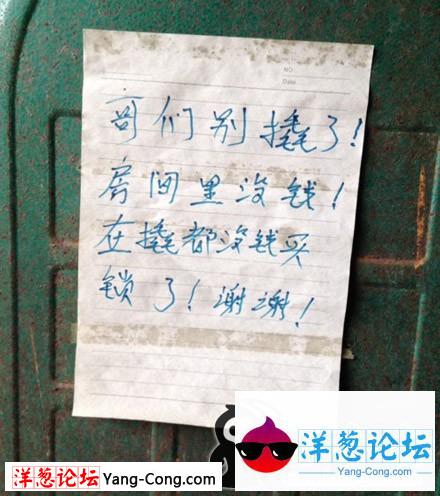 NO.
Date
哥们别撬了!
房间里没钱!
在撬都没钱买
锁了!谢谢!
洋葱论坛 Yang-Cong.com
洋葱论坛
Yang-Cong.com